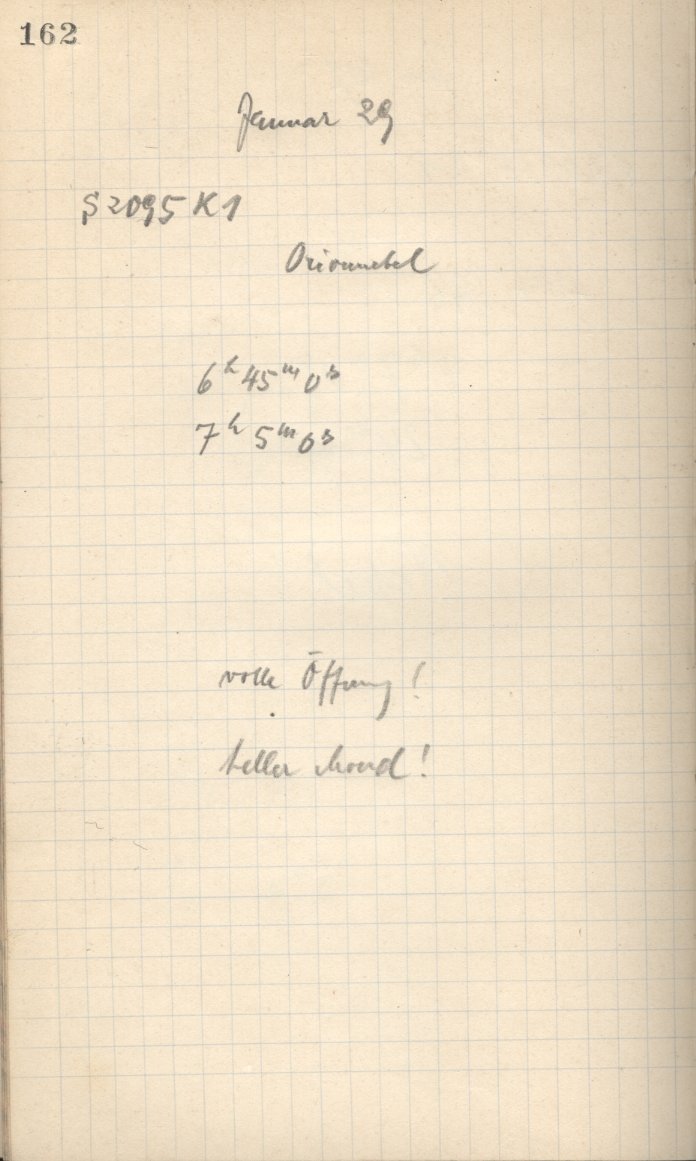 162
Januar 29
S 2095 K1
Orionnebel
6h 45m 0s
7h 5m 0s
volle Öffnung!
heller Mond!